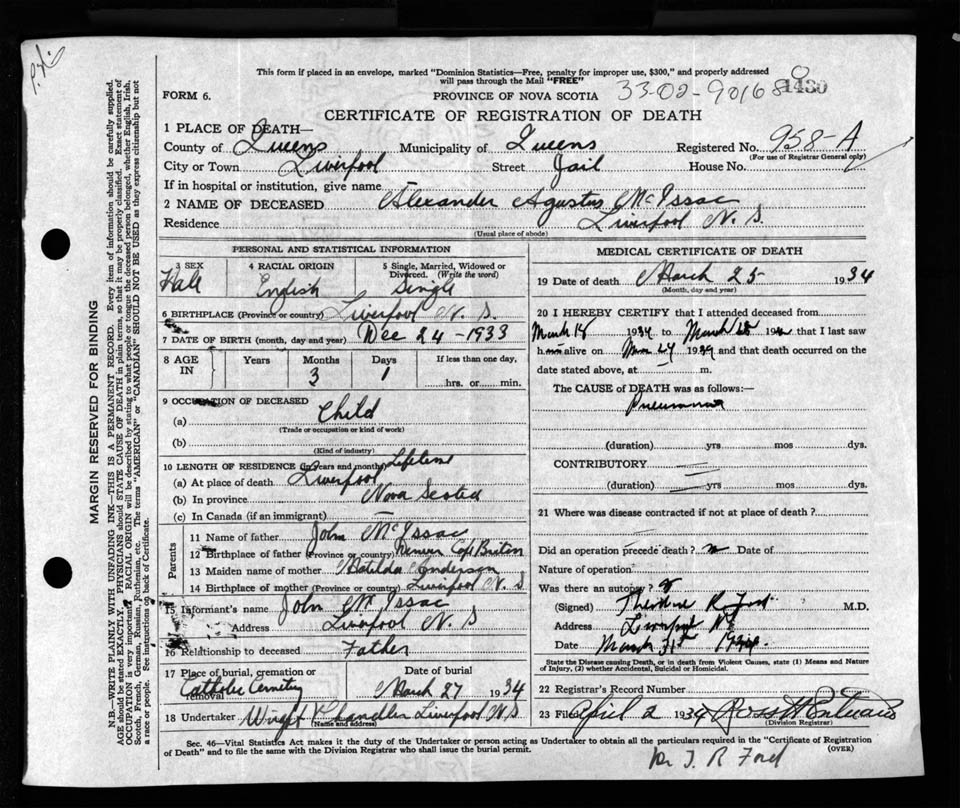 This form if placed in an envelope, marked "Dominion Statistics—Free, penalty for improper use, $300," and properly addressed
will pass through the Mail "FREE"
FORM 6. PROVINCE OF NOVA SCOTIA 33-02-90168 1430
CERTIFICATE OF REGISTRATION OF DEATH
1 PLACE OF DEATH—
County of Queens Municipality of Queens Registered No. 958-A
(For use of Registrar General only)
City or Town Liverpool Street Jail House No.
If in hospital or institution, give name
2 NAME OF DECEASED Alexander Agustus McIssac
Residence Liverpool N. S.
(Usual place of abode)
PERSONAL AND STATISTICAL INFORMATION
3 SEX 4 RACIAL ORIGIN 5 Single, Married, Widowed or
Divorced. (Write the word)
Male English Single
6 BIRTHPLACE (Province or country) Liverpool N. S.
7 DATE OF BIRTH (month, day and year) Dec 24-1933
8 AGE IN Years Months Days If less than one day,
3 1 hrs. or min.
9 OCCUPATION OF DECEASED
(a) Child
(Trade or occupation or kind of work)
(b)
(Kind of industry)
10 LENGTH OF RESIDENCE (in years and months) Lifetime
(a) At place of death Liverpool
(b) In province Nova Scotia
(c) In Canada (if an immigrant) —
Parents
11 Name of father John McIssac
12 Birthplace of father (Province or country) Cape Briton
13 Maiden name of mother Matilda Anderson
14 Birthplace of mother (Province or country) Liverpool N. S
15 Informant's name John McIssac
Address Liverpool N. S
16 Relationship to deceased Father
17 Place of burial, cremation or removal Date of burial
Catholic Cemetery March 27 1934
18 Undertaker Chandler Liverpool N S
(Name and address)
MEDICAL CERTIFICATE OF DEATH
19 Date of death March 25 1934
(Month, day and year)
20 I HEREBY CERTIFY that I attended deceased from
March 18 1934 to March 192 that I last saw
h alive on Mar 24 1934 and that death occurred on the
date stated above, at m.
The CAUSE of DEATH was as follows:—
Pneumonia
(duration) yrs mos dys.
CONTRIBUTORY
(duration) yrs mos dys.
21 Where was disease contracted if not at place of death?
Did an operation precede death? no Date of
Nature of operation
Was there an autopsy?
(Signed) Theodore R. Ford M.D.
Address Liverpool NS
Date March 31st 1934
State the Disease causing Death, or in death from Violent Causes, state (1) Means and Nature
of Injury, (2) whether Accidental, Suicidal or Homicidal.
22 Registrar's Record Number
23 Filed April 2 1934 Ross
(Division Registrar)
Sec. 46—Vital Statistics Act makes it the duty of the Undertaker or person acting as Undertaker to obtain all the particulars required in the "Certificate of Registration
of Death" and to file the same with the Division Registrar who shall issue the burial permit. (OVER)
Dr T. R Ford
MARGIN RESERVED FOR BINDING
N.B.—WRITE PLAINLY WITH UNFADING INK—THIS IS A PERMANENT RECORD. Every item of information should be carefully supplied.
AGE should be stated EXACTLY. PHYSICIANS should STATE CAUSE OF DEATH in plain terms, so that it may be properly classified. Exact statement of
OCCUPATION is very important. RACIAL ORIGIN will be described by stating to what people or tongue the deceased person belonged, whether English, Irish,
Scotch, French, German, Russian, Ruthenian, etc. The terms "AMERICAN" or "CANADIAN" SHOULD NOT BE USED as they express citizenship but not
a race or people. See instructions on back of Certificate.